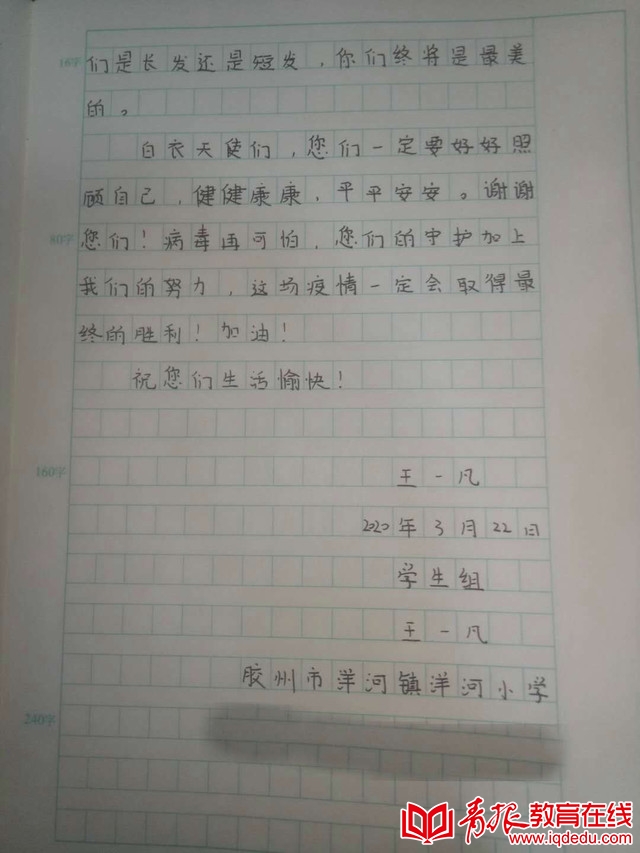 16字
们是长发还是短发，你们终将是最美
的。
白衣天使们，您们一定要好好照
顾自己，健健康康，平平安安。谢谢
60字
您们！病毒再可怕，您们的守护加上
我们的努力，这场疫情一定会取得最
终的胜利！加油！
祝您们生活愉快！
160字
王一凡
2020年3月22日
学生组
王一凡
胶州市洋河镇洋河小学
240字
青报教育在线
www.iqdedu.com